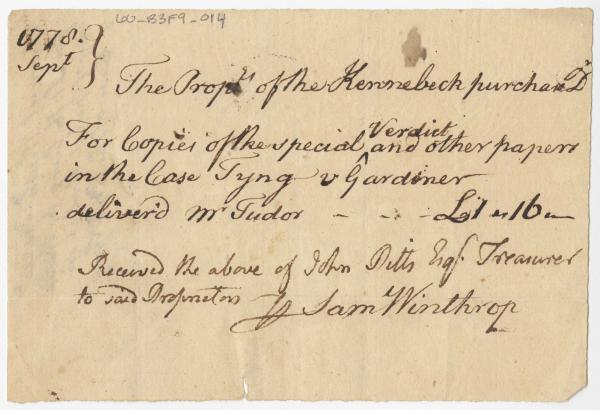 LW_B3F9_014
1778.
Sept
The Propts of the Kennebeck purchase Dr
For Copies of the special Verdict and other papers
in the Case Tyng v Gardiner
deliver'd mr Tudor - - - £1 " 16 "
Received the above of John Pitts Esqr Treasurer
to said Proprietors
Sam Winthrop